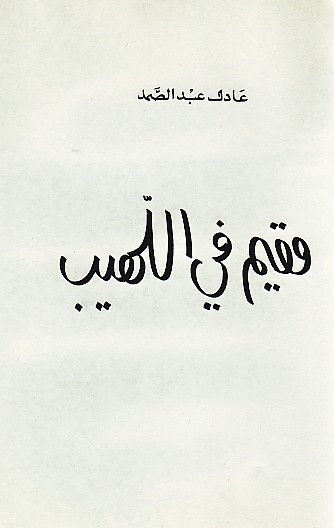 عَادل عبْد الصَّمد
مقيم في اللّهيب